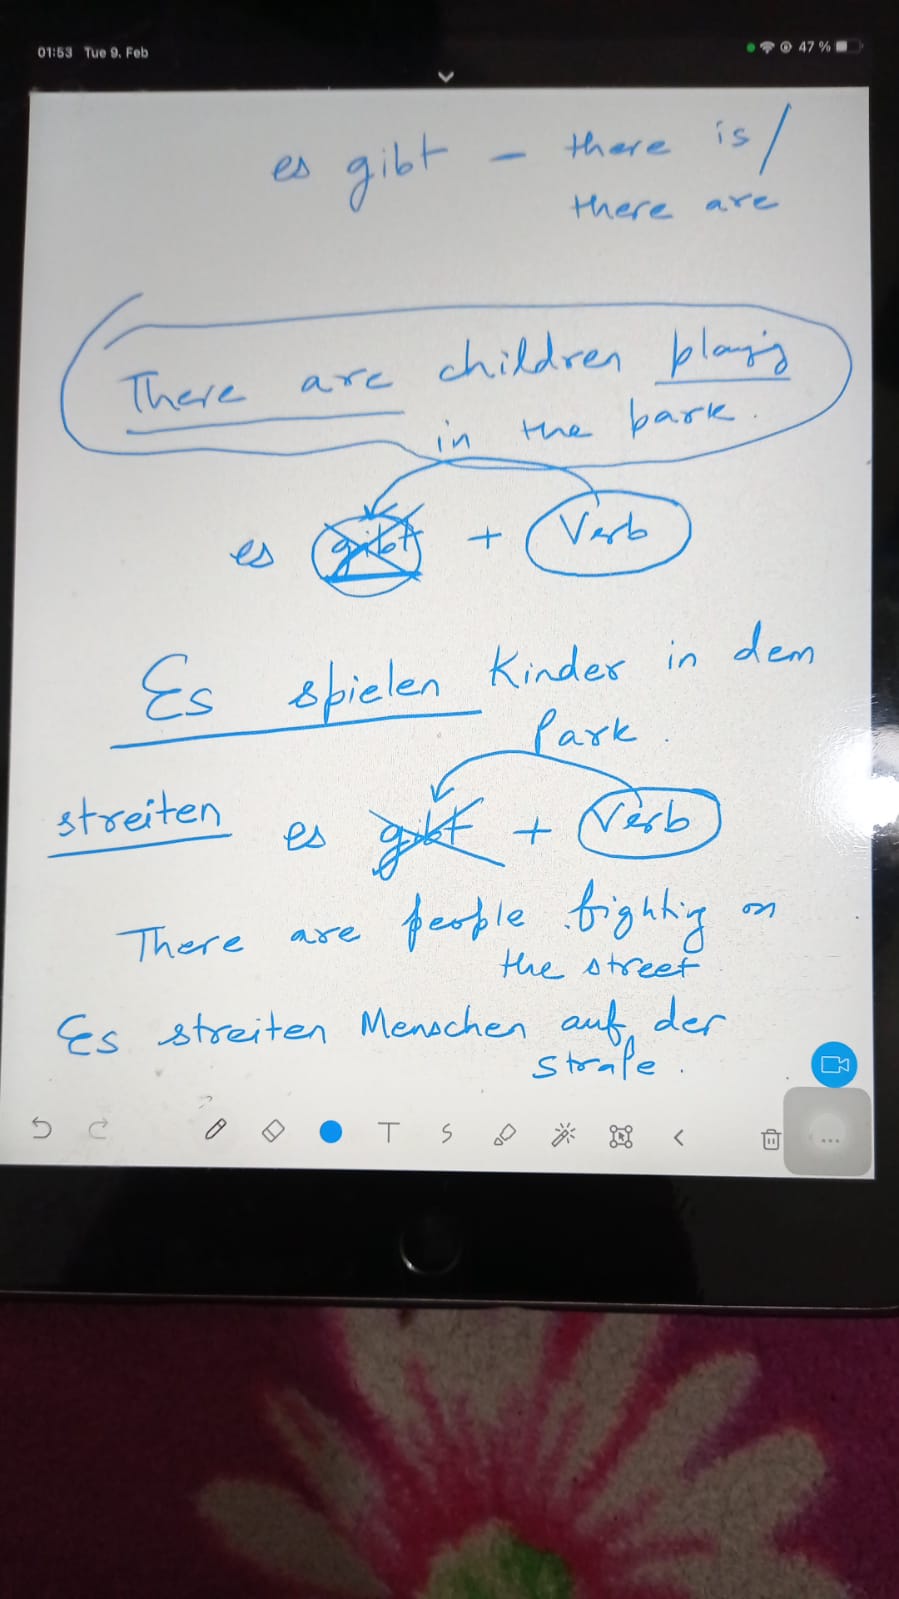 01:53 Tue 9. Feb 47 %
es gibt – there is/
there are
There are children playing
in the park.
es gibt + Verb
Es spielen Kinder in dem
Park.
streiten es gibt + Verb
There are people fighting on
the street
Es streiten Menschen auf der
Straße.
T